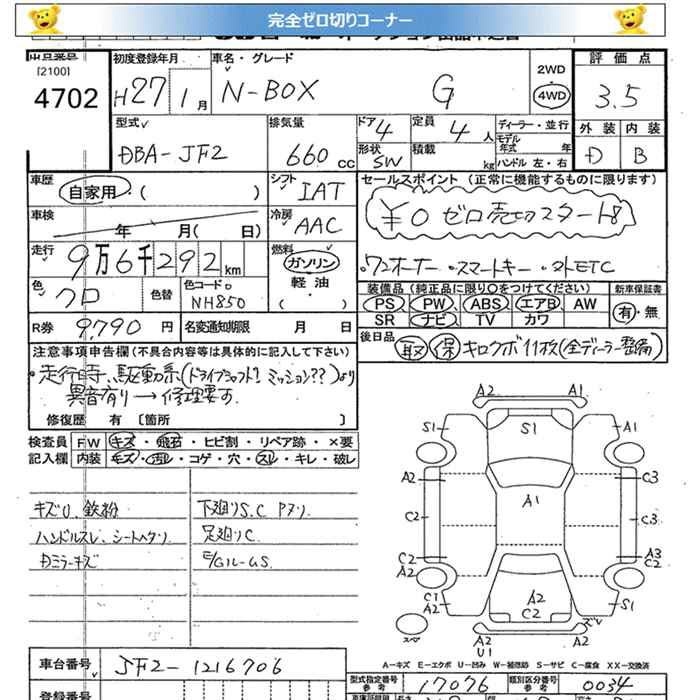 完全ゼロ切りコーナー
[2100]
4702
初度登録年月
H27年1月
車名・グレード
N-BOX G
2WD
4WD
評価点
3.5
外装 内装
D B
型式
DBA-JF2
排気量
660 CC
ドア 4
形状 SW
定員 4人
積載 kg
ディーラー・並行
モデル年式 年
ハンドル 左・右
車歴
自家用・( )
シフト
IAT
車検
年 月( 日)
冷房
AAC
走行
9万6千292km
燃料
ガソリン
軽油
色
クロ
色替
色コードNo
NH850
R券 9,790 円
名変通知期限 月 日
セールスポイント(正常に機能するものに限ります)
¥0 ゼロ売切スタート
ワンオーナー ・スマートキー ・外ETC
装備品(純正品に限り○をつけてください)
新車保証書
PS PW ABS エアB AW
SR ナビ TV カワ
有・無
後日品
取 保 キロクボ11枚(全ディーラー整備)
注意事項申告欄(不具合内容等は具体的に記入して下さい)
・走行時、駆動系(ドライブシャフト? ミッション??)より
異音有り→修理要す
修復歴 有 〔箇所 〕
検査員 FW キズ・飛石・ヒビ割・リペア跡・×要
記入欄 内装 キズ・汚レ・コゲ・穴・スレ・キレ・破レ
キズU、鉄粉
ハンドルスレ、シートヘタリ
Dミラーキズ
下廻りS.C Pアリ
足廻りC
E/Gルーム S
A2 A1
S1 S1 A1
A2 A1 C3
C2 C3
C2 A3
A2 C2
C1 A2 S1
A2 C2 ズレ
スペア
A2 A2
U1
A-キズ E-エクボ U-凹み W-補修跡 S-サビ C-腐食 XX-交換済
車台番号
JF2-1216706
型式指定番号
参考
17076
類別区分番号
参考
0034
登録番号